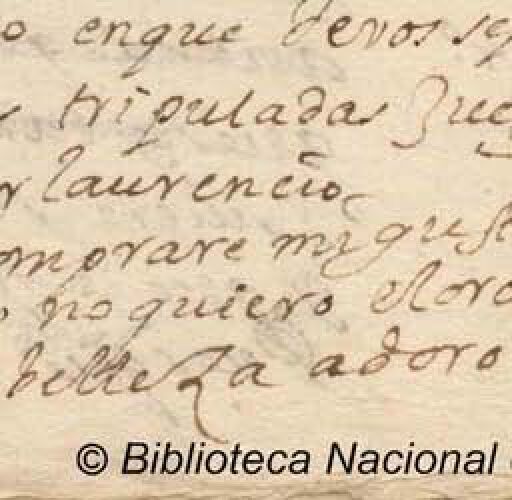 o enque devos se
s tripuladas Jueg
r laurencio
omprare mi gust
o no quiero eloro
belleza adoro
© Biblioteca Nacional